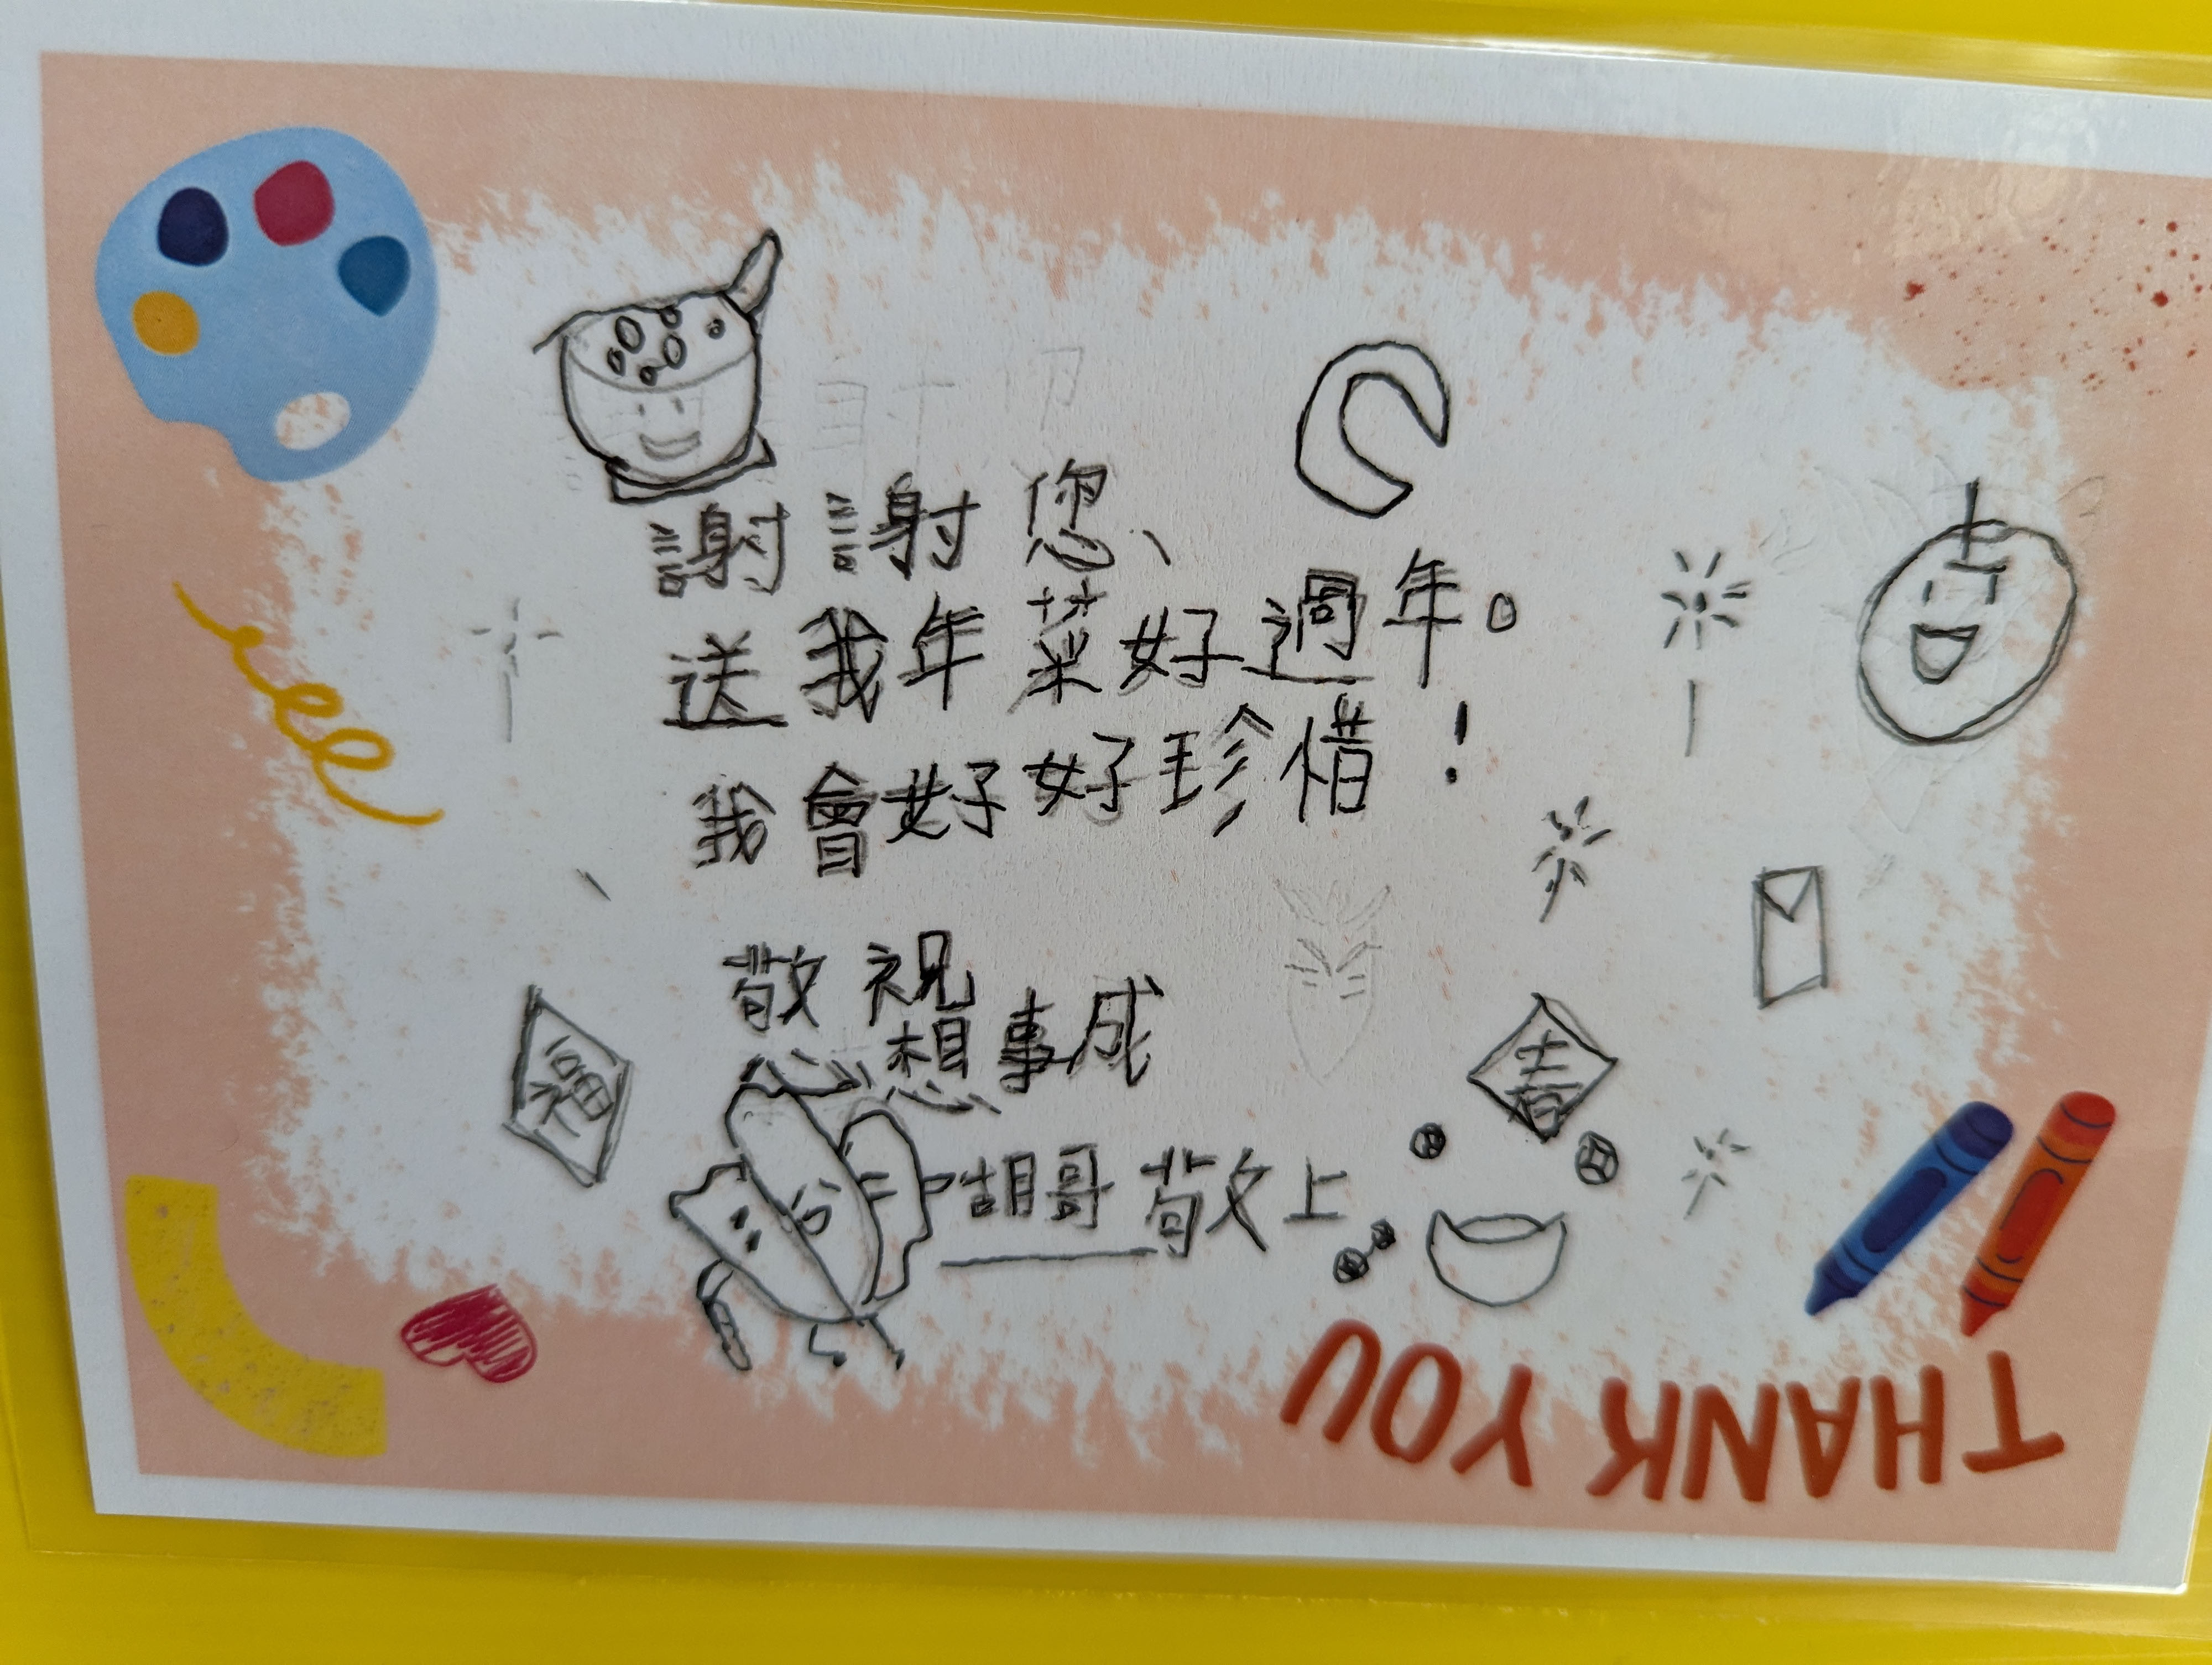 謝謝您、
送我年菜好過年。
我會好好珍惜！
敬祝
心想事成
福
春
胡哥敬上
THANK YOU